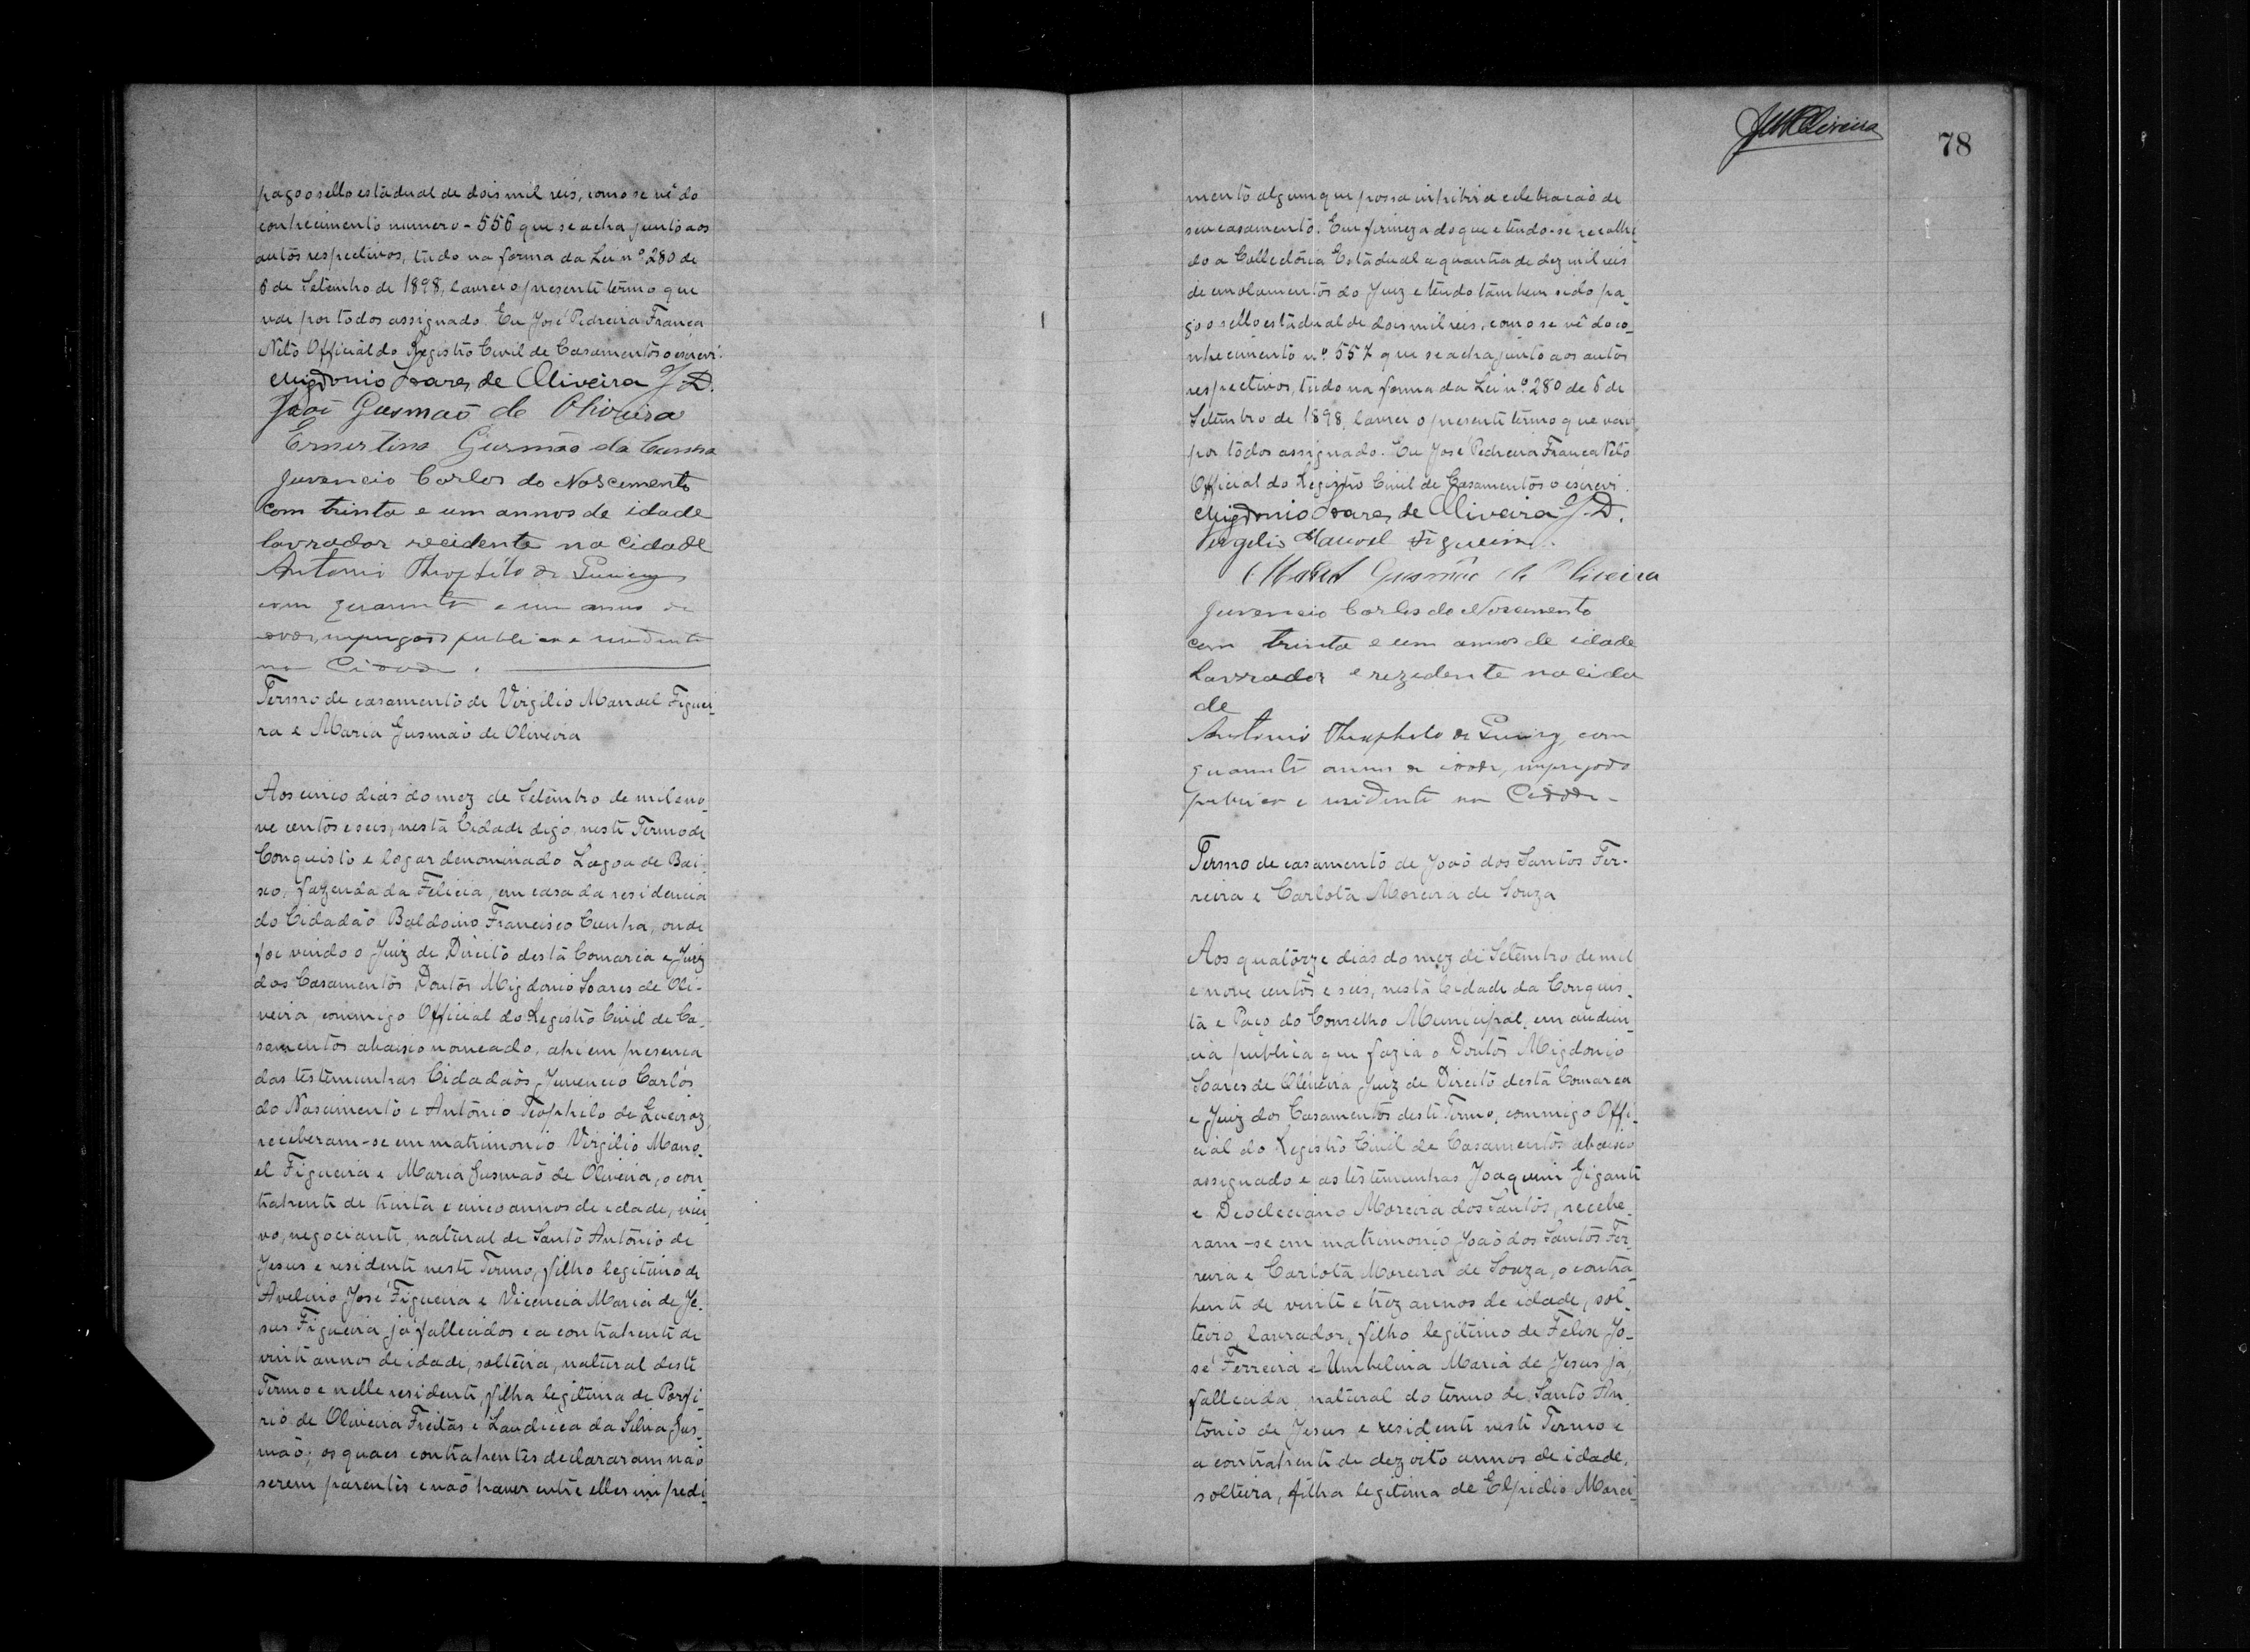 pago o sello estadual de dois mil reis, como se vê do
conhecimento numero - 556 que se acha junto aos
autos respectivos, tudo na forma da Lei nº 280 de
6 de Setembro de 1898, lavrei o presente termo que
vae por todos assignado. Eu José Pedreira França
Neto Official do Registro Civil de Casamentos o escrevi.
Migdonio Soares de Oliveira J. D.
João Gusmão de Oliveira
Ernertina Gusmão da Cunha
Juvencio Carlos do Nascimento
com trinta e um annos de idade
lavrador recidente na cidade
Antonio Theophilo de
com quarenta e um annos de
publico e residente
na Cidade.
Termo de casamento de Virgilio Manoel Figuei-
ra e Maria Gusmão de Oliveira
Aos cinco dias do mez de Setembro de mil e no-
ve centos e seis, nesta Cidade digo, neste Termo de
Conquista e logar denominado Lagoa de Bai-
xo, fazenda da Felicia, em casa da residencia
do Cidadão Baldoino Francisco Cunha, onde
foi vindo o Juiz de Direito desta Comarca e Juiz
dos Casamentos Doutor Migdonio Soares de Oli-
veira, commigo Official do Registro Civil de Ca-
samentos abaixo nomeado, ahi em presença
das testemunhas Cidadãos Juvencio Carlos
do Nascimento e Antonio Teophilo de Queiroz,
receberam-se em matrimonio Virgilio Mano-
el Figueira e Maria Gusmão de Oliveira, o con-
trahente de trinta e cinco annos de idade, viu-
vo, negociante, natural de Santo Antonio de
Jesus e residente neste Termo, filho legitimo de
Avelino José Figueira e Vicencia Maria de Je-
sus Figueira já fallecidos e a contrahente de
vinte annos de idade, solteira, natural deste
Termo e nelle residente, filha legitima de Porfi-
rio de Oliveira Freitas e Laudicea da Silva Gus-
mão; os quaes contrahentes declararam não
serem parentes e não haver entre elles impedi-
JMOliveira
78
mento algum que possa inhibir a celebração de
seu casamento. Em firmeza do que e tendo-se recolhi-
do a Collectoria Estadual a quantia de dez mil reis
de emolumentos do Juiz e tendo tambem sido pa-
go o sello estadual de dois mil reis, como se vê do co-
nhecimento nº 557 que se acha junto aos autos
respectivos, tudo na forma da Lei nº 280 de 6 de
Setembro de 1898, lavrei o presente termo que vae
por todos assignado. Eu José Pedreira França Neto
Official do Registro Civil de Casamentos o escrevi.
Migdonio Soares de Oliveira J. D.
Virgilio Manoel Figueira.
Gusmão de Oliveira
Juvencio Carlos do Nascimento
com trinta e um annos de idade
Lavrador e rezedente na cida
de
Antonio Theophilo de com
quarenta annos de idade, empregado
publico e residente na Cidade-
Termo de casamento de João dos Santos Fer-
reira e Carlota Moreira de Souza
Aos quatorze dias do mez de Setembro de mil
e nove centos e seis, nesta Cidade da Conquis-
ta e Paço do Conselho Municipal, em audien-
cia publica que fazia o Doutor Migdonio
Soares de Oliveira Juiz de Direito desta Comarca
e Juiz dos Casamentos deste Termo, commigo Offi-
cial do Registro Civil de Casamentos abaixo
assignado e as testemunhas Joaquim Gigante
e Deocleciano Moreira dos Santos, recebe-
ram-se em matrimonio João dos Santos Fer-
reira e Carlota Moreira de Souza, o contra-
hente de vinte e trez annos de idade, sol-
teiro, lavrador, filho legitimo de Felix Jo-
sé Ferreira e Umbelina Maria de Jesus já
fallecida, natural do termo de Santo An-
tonio de Jesus e residente neste Termo e
a contrahente de dezoito annos de idade,
solteira, filha legitima de Elpidio Morei-